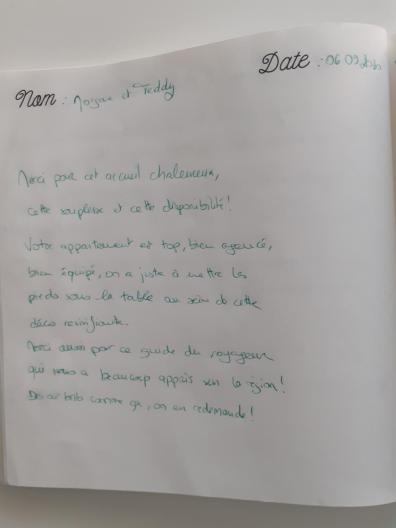 Nom : et Teddy
Date : 06 09
Merci pour cet accueil chaleureux,
cette souplesse et cette disponibilité !
Votre appartement est top, bien agencé,
bien équipé, on a juste à mettre les
pieds sous la table au sein de cette
déco revivifiante.
Merci aussi pour ce guide du voyageur
qui nous a beaucoup appris sur la région !
Des airbnb comme ça, on en redemande !